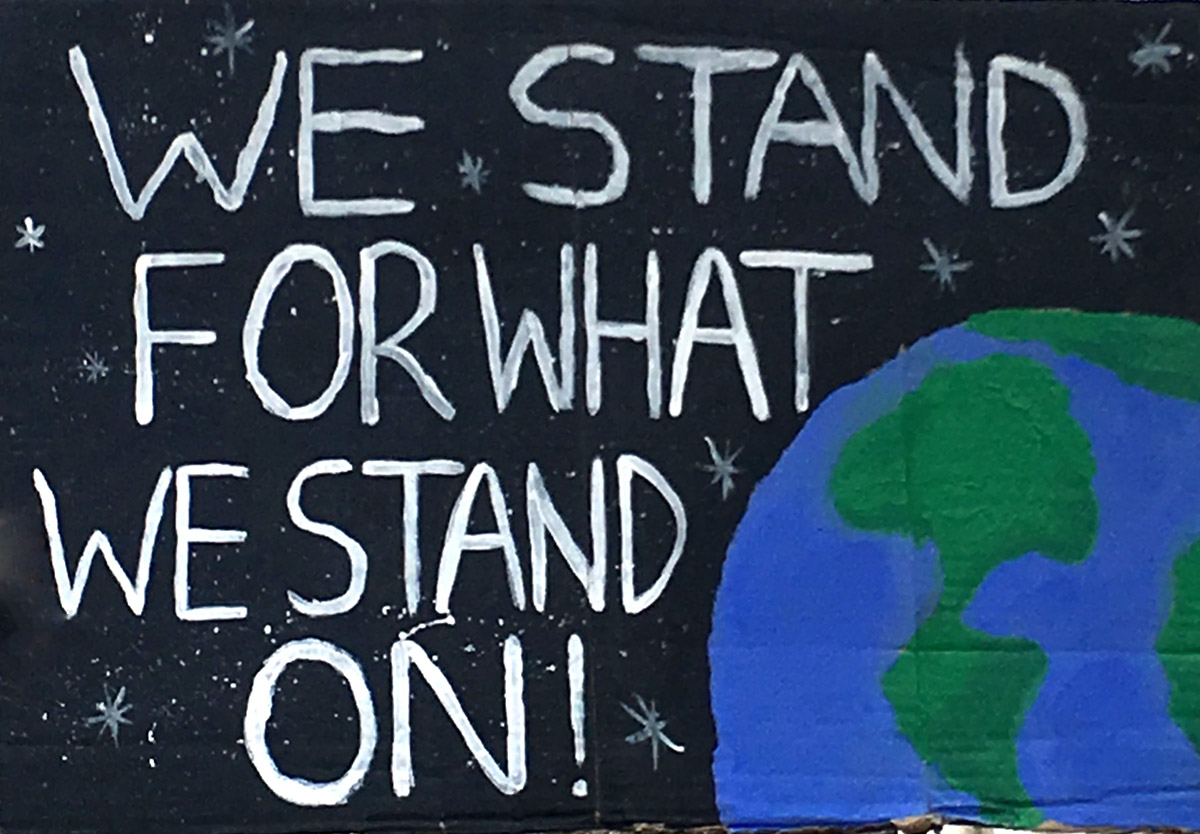 WE STAND
FOR WHAT
WE STAND
ON!